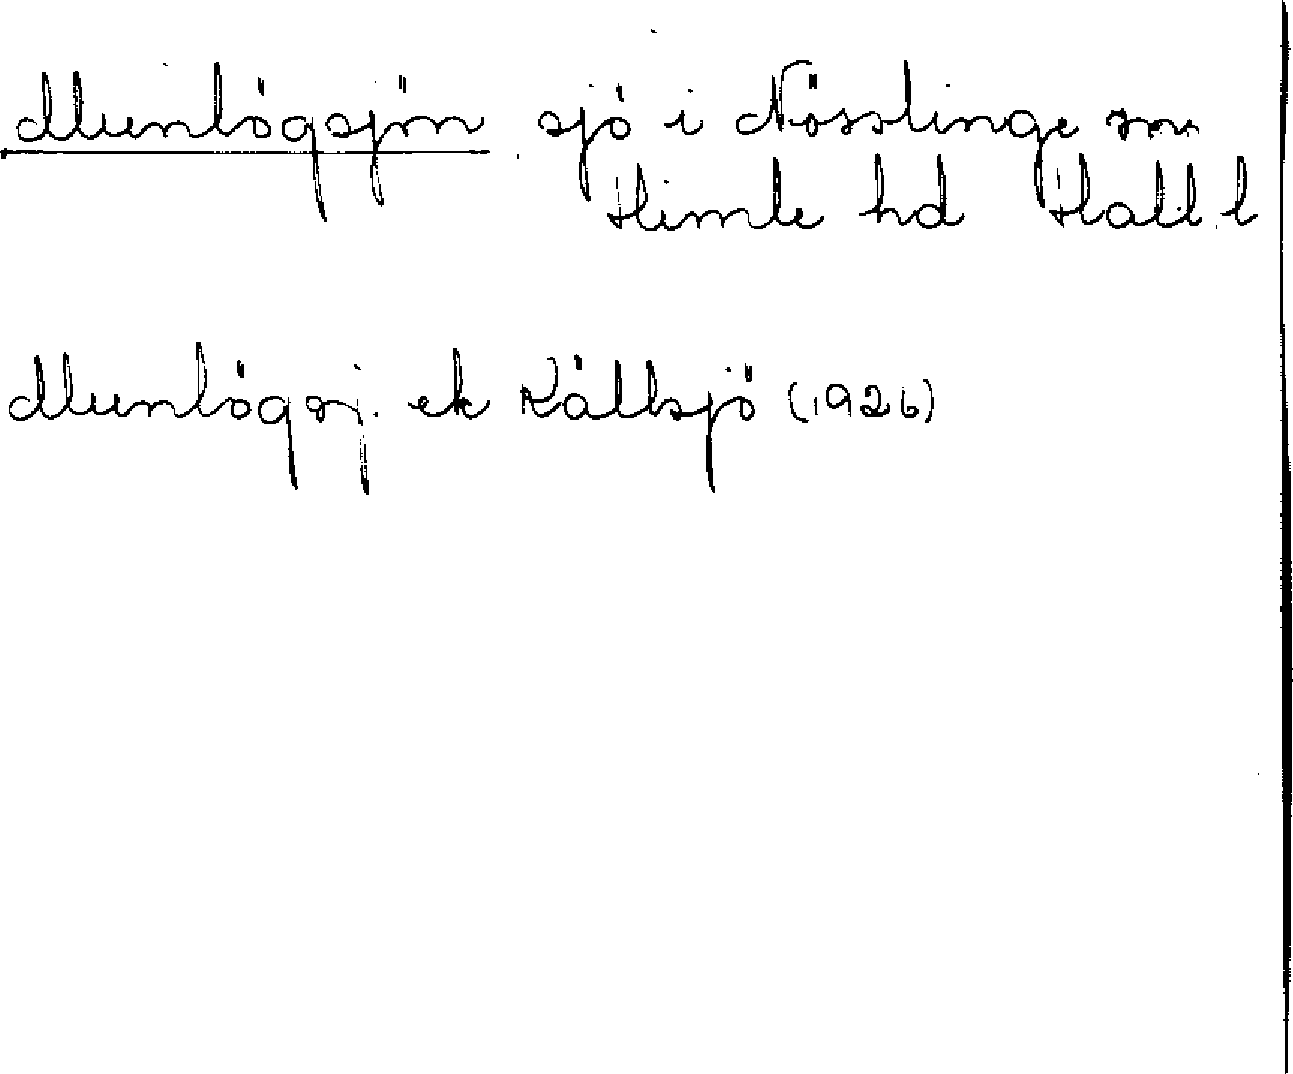 Munlögsjön sjö i Nösslinge sn
Himle hd Hall. l
Munlögsj. ek Källsjö (1926)